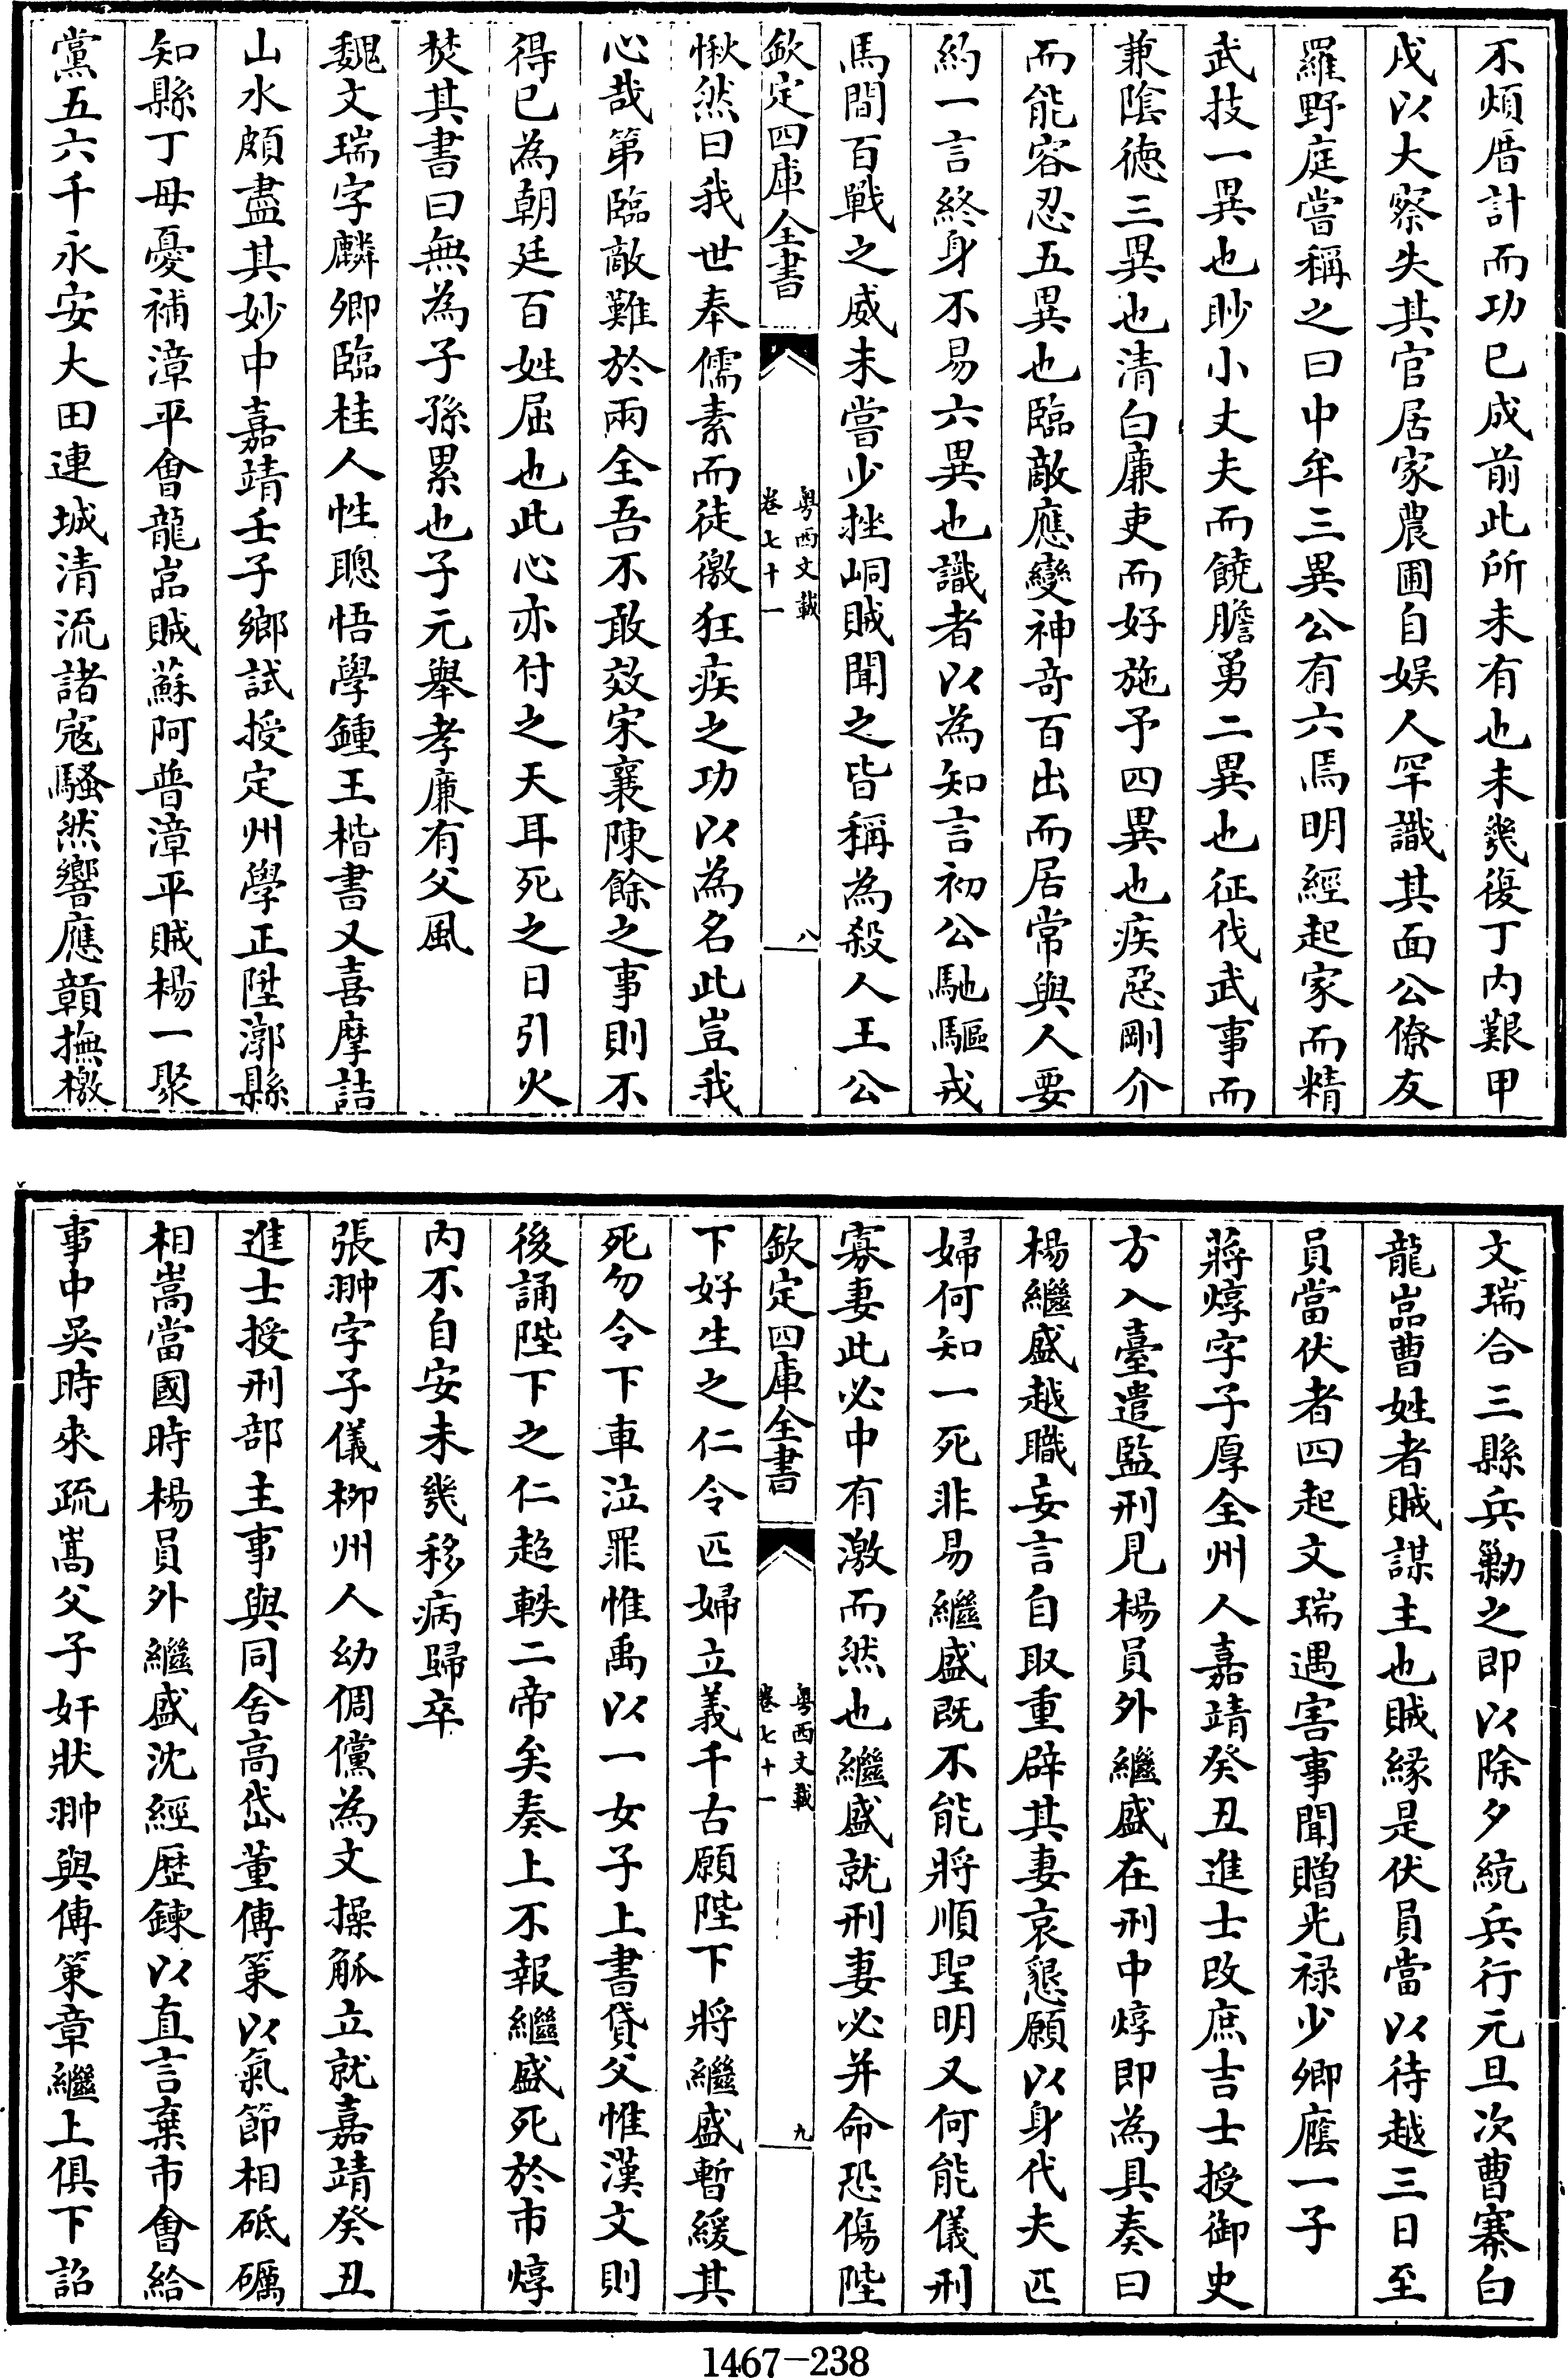 不煩厝計而功已成前此所未有也未幾復丁内艱甲
戌以大察失其官居家農圃自娱人罕識其面公僚友
羅野庭嘗稱之曰中牟三異公有六焉明經起家而精
武技一異也眇小丈夫而饒膽勇二異也征伐武事而
兼隂徳三異也清白廉吏而好施予四異也疾惡剛介
而能容忍五異也臨敵應變神竒百出而居常與人要
約一言終身不易六異也識者以為知言初公馳驅戎
馬間百戰之威未嘗少挫峒賊聞之皆稱為殺人王公
欽定四庫全書
粤西文載
卷七十一
八
愀然曰我世奉儒素而徒徼狂疾之功以為名此豈我
心哉第臨敵難於兩全吾不敢效宋襄陳餘之事則不
得已為朝廷百姓屈也此心亦付之天耳死之日引火
焚其書曰無為子孫累也子元舉孝廉有父風
魏文瑞字麟卿臨桂人性聰悟學鍾王楷書又喜摩詰
山水頗盡其妙中嘉靖壬子鄉試授定州學正陞漷縣
知縣丁母憂補漳平會龍嵓賊蘇阿普漳平賊楊一聚
黨五六千永安大田連城清流諸寇騷然響應贛撫檄
文瑞合三縣兵勦之即以除夕統兵行元旦次曹寨白
龍嵓曹姓者賊謀主也賊縁是伏員當以待越三日至
員當伏者四起文瑞遇害事聞贈光禄少卿廕一子
蔣焞字子厚全州人嘉靖癸丑進士改庶吉士授御史
方入臺遣監刑見楊員外繼盛在刑中焞即為具奏曰
楊繼盛越職妄言自取重辟其妻哀懇願以身代夫匹
婦何知一死非易繼盛既不能將順聖明又何能儀刑
寡妻此必中有激而然也繼盛就刑妻必并命恐傷陛
欽定四庫全書
粤西文載
卷七十一
九
下好生之仁令匹婦立義千古願陛下將繼盛暫緩其
死勿令下車泣罪惟禹以一女子上書貸父惟漢文則
後誦陛下之仁超軼二帝矣奏上不報繼盛死於市焞
内不自安未幾移病歸卒
張翀字子儀柳州人幼倜儻為文操觚立就嘉靖癸丑
進士授刑部主事與同舍高岱董傳策以氣節相砥礪
相嵩當國時楊員外繼盛沈經歴鍊以直言棄市會給
事中吳時來疏嵩父子奸狀翀與傳策章繼上俱下詔
1467-238